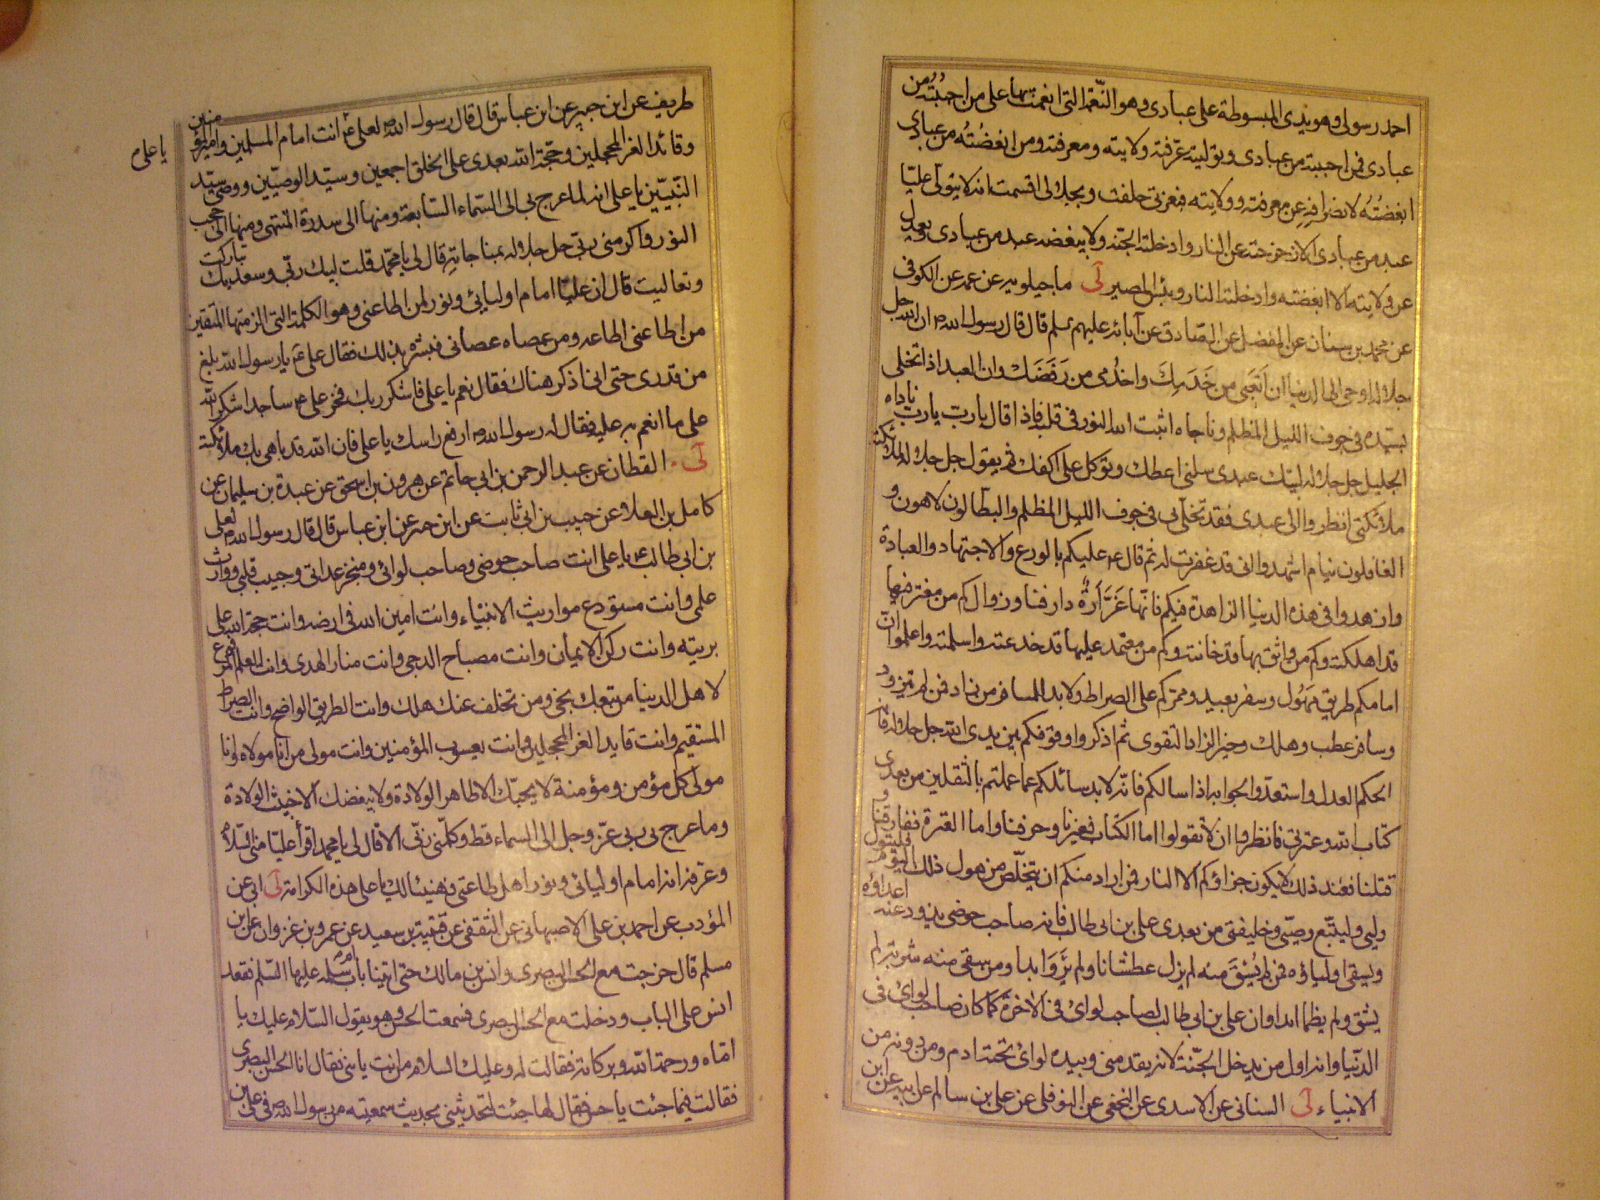 احمد رسولى وهو يدى المبسوطة على عبادى وهو النّعمة التى انعمت بها على من احببته من
عبادى فمن احببته من عبادى وتوليته عرّفته ولايته ومعرفته ومن ابغضته من عبادى
ابغضتُه لانصرافه عن معرفته وولايته فبعزتى حلفت وبجلالى اقسمت انه لا يتولّى عليّا
عبد من عبادى الا زحزحته عن النار وادخلته الجنّه ولا يبغضه عبد من عبادى ويعدل
عن ولايته الا ابغضته وادخلته النار وبئس المصير لى ماجيلويه عن عمه عن الكوفى
عن محمد بن سنان عن المفضل عن الصادق عن آبائه عليهم سلم قال قال رسول الله ان الله جل
جلاله اوحى الى الدنيا ان اَتعِبى من خَدَمكِ واخدُمى من رَفَضَكِ وان العبد اذا تخلى
بسيّده فى جوف الليل المظلم وناجاه اثبت الله النور فى قلبه فاذا قال يا رب يا رب ناداه
الجليل جل جلاله لبّيك عبدى سلنى اعطك وتوكل على اكفك ثم يقول جل جلاله لملائكته
ملائكتى انظروا الى عبدى فقد تخلّى بى فى جوف الليل المظلم والبطّالون لاهون و
الغافلون نيام اشهدوا انى قد غفرت له ثم قال ع عليكم بالورع والاجتهاد والعبادة
وازهدوا فى هذه الدنيا الزاهدة فيكم فانّها غَرّارَةٌ دار فناء وزوال كم من مغترّ فيها
قد اهلكته وكم من واثق بها قد خانته وكم من معتمد عليها قد خدعته واسلمته واعلموا انّ
امامكم طريق مَهُول وسفر بعيد وممركم على الصراط ولا بد للمسافر من زاد فمن لم يتزود
وسافر عطب وهلك وخير الزاد التقوى ثم اذكروا وقوفكم بين يدى الله جل جلاله فانه
الحكم العدل واستعدّوا لجوابه اذا سالكم فانّه لا بد سائلكم عما عملتم بالثقلين من بعدى
كتاب الله وعترتى فانظروا ان لا تقولوا اما الكتاب فغيرنا وحرفنا واما العترة ففارقنا و
قتلنا فعند ذلك لا يكون جزاؤكم الا النار فمن اراد منكم ان يتخلّص من هول ذلك اليوم فليتول
وليى وليتّبع وصيّى وخليفتى من بعدى على بن ابى طالب فانه صاحب حوضى يذود عنه اعداؤه
ويسقى اولياؤه فمن لم يُسْقَ منه لم يزل عطشانا ولم يَروَ ابدا ومن سقى منه شربة لم
يشق ولم يظما ابدا وان على بن ابى طالب لصاحب لوائى فى الاخرة كما كان صاحب لوائى فى
الدّنيا وانه اول من يدخل الجنّة لانه يقدمنى وبيده لوائى تحته ادم ومن دونه من
الانبياء لى السنانى عن الاسدى عن النخعى عن النوفلى عن على بن سالم عن ابيه عن ابن
طريف عن ابن جبير عن ابن عباس قال قال رسول الله لعلى ع انت امام المسلمين وامير المؤمنين
يا على م
وقائد الغر المحجلين وحجّة الله بعدى على الخلق اجمعين وسيّد الوصيّين ووصىّ سيّد
النّبيّين يا على انه لما عرج بى الى السّماء السّابعة ومنها الى سدرة المنتهى ومنها الى حجب
النور واكرمنى ربّى جل جلاله بمناجاته قال لى يا محمّد قلت لبيك ربّى وسعديك تباركت
وتعاليت قال ان عليّا امام اوليائى ونور لمن اطاعنى وهو الكلمة التى الزمتها المتّقين
من اطاعه اطاعنى ومن عصاه عصانى فبشّره بذلك فقال على ع يا رسول الله بلغ
من قدرى حتى انى اذكر هناك فقال نعم يا على فاشكر ربك فخر على ع ساجدا شكرا لله
على ما انعم به عليه فقال له رسول الله ارفع راسك يا على فان الله قد باهى بك ملائكته
لى القطان عن عبد الرحمن بن ابى حاتم عن هرون بن اسحق عن عبدة بن سليمان عن
كامل بن العلا عن حبيب بن ابى ثابت عن ابن جبير عن ابن عباس قال قال رسول الله لعلى
بن ابى طالب ع يا على انت صاحب حوضى وصاحب لوائى ومنجز عداتى وحبيب قلبى ووارث
علمى وانت مستودع مواريث الانبياء وانت امين الله فى ارضه وانت حجة الله على
بريته وانت ركن الايمان وانت مصباح الدجى وانت منار الهدى وانت العلم المرفوع
لاهل الدنيا من تبعك نجى ومن تخلف عنك هلك وانت الطريق الواضح وانت الصراط
المستقيم وانت قايد الغر المحجلين وانت يعسوب المؤمنين وانت مولى من انا مولاه وانا
مولى كل مؤمن ومؤمنة لا يحبّك الا طاهر الولادة ولا يبغضك الا خبيث الولادة
وما عرج بى ربى عزّ وجل الى السماء قط وكلّمنى ربّى الا قال لى يا محمد اقرأ عليّا منّى السّلام
وعرّفه انه امام اوليائى ونور اهل طاعتى فهنيئا لك يا على هذه الكرامة لى ابى عن
المؤدب عن احمد بن على الاصبهانى عن الثقفى عن قتيبة بن سعيد عن عمرو بن غزوان عن ابن
مسلم قال خرجت مع الحسن البصرى وانس بن مالك حتى اتينا باب ام سلمة عليها السّلم فقعد
انس على الباب ودخلت مع الحسن البصرى فسمعت الحسن وهو يقول السّلام عليك يا
امّاه ورحمة الله وبركاته فقالت له وعليك السلام من انت يا بنى فقال انا الحسن البصرى
فقالت فيما جئت يا حسن فقال لها جئت لتحدثينى بحديث سمعته من رسول الله فى على بن